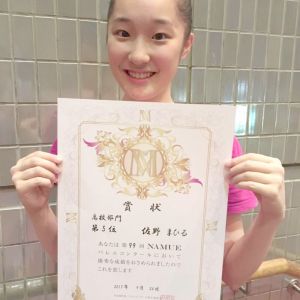 M
賞 状
高校部門
第5位 佐野 まひる
あなたは第99回NAMUE
バレエコンクールにおいて
優秀な成績をおさめられましたので
これを賞します